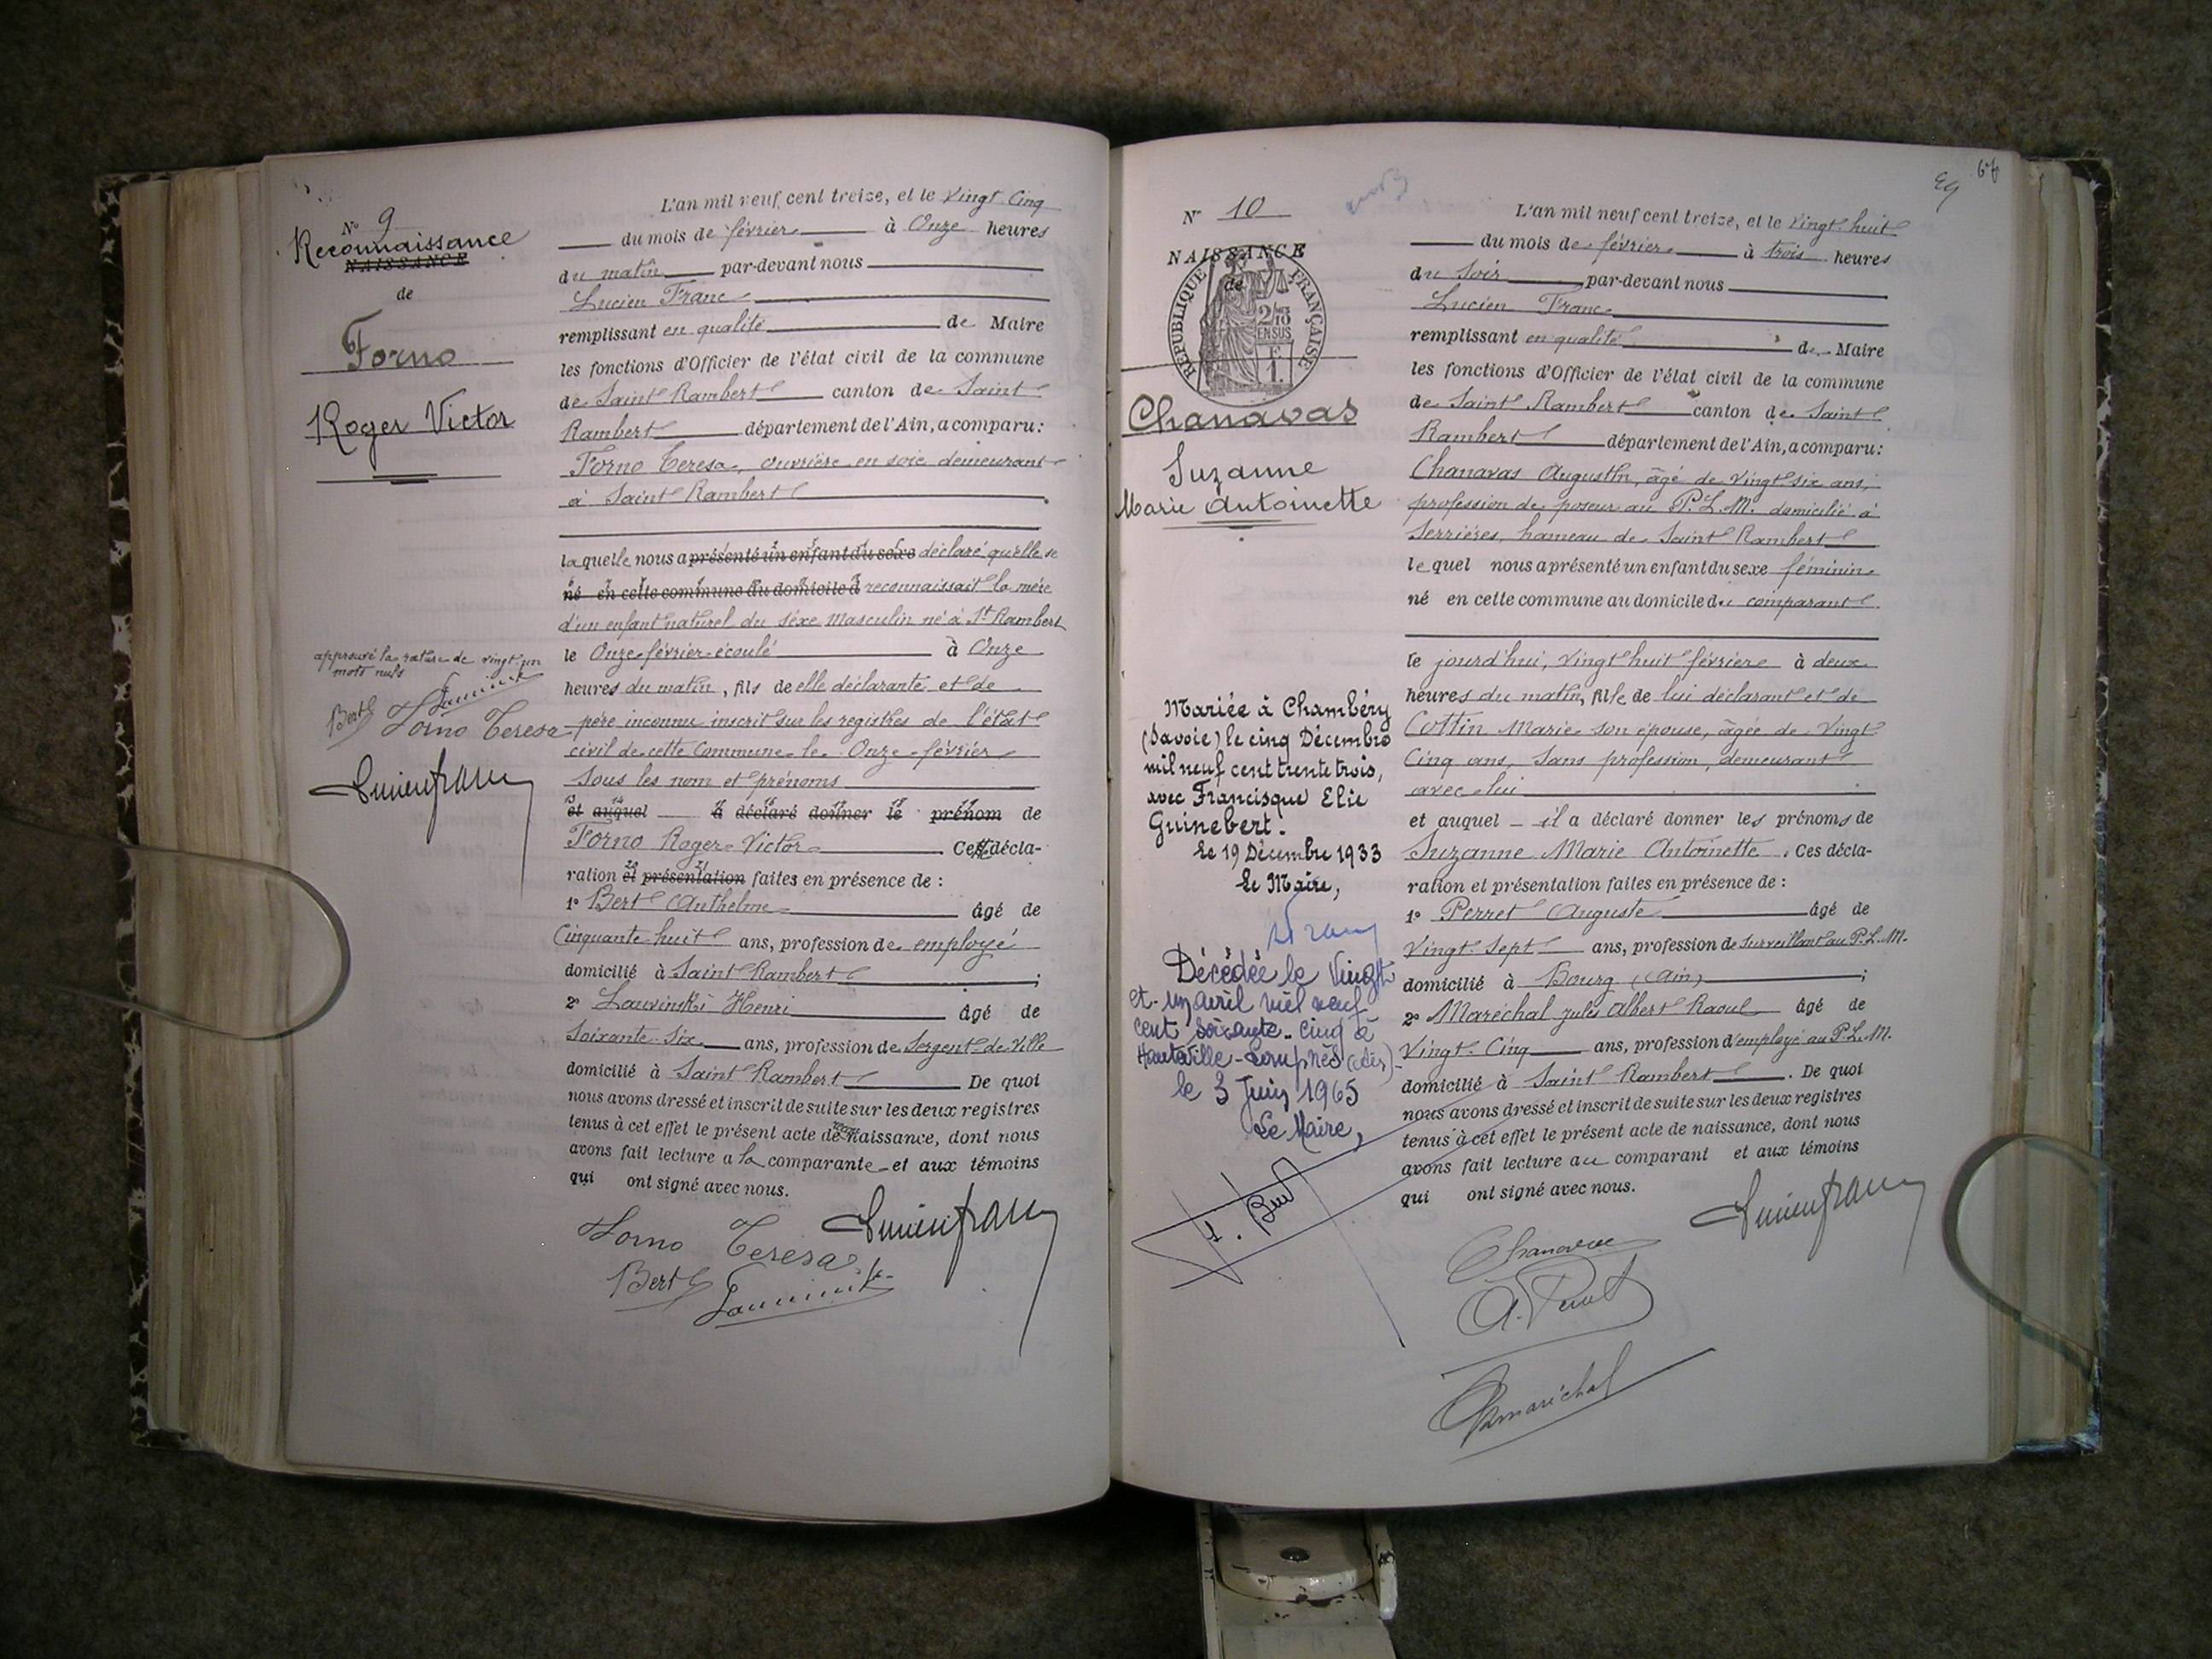 N° 9
Reconnaissance
NAISSANCE
de
Forno
Roger Victor
approuvé la rature de vingt un
mots nuls
Bert
Forno Teresa
L'an mil neuf cent treize, et le Vingt Cinq
du mois de février à Onze heures
du matin par-devant nous
Lucien Franc
remplissant en qualité de Maire
les fonctions d'Officier de l'état civil de la commune
de Saint Rambert canton de Saint
Rambert département de l'Ain, a comparu:
Forno Teresa, ouvrière en soie demeurant
à Saint Rambert
laquelle nous a présenté un enfant du sexe déclaré qu'elle se
né en cette commune au domicile d reconnaissait la mère
d'un enfant naturel du séxe Masculin né à St Rambert
le Onze février écoulé à Onze
heures du matin, fils de elle déclarante et de
père inconnu inscrit sur les registres de l'état
civil de cette Commune le Onze février
sous les nom et prénoms
et auquel a déclaré donner le prénom de
Forno Roger Victor. Cette décla-
ration et présentation faites en présence de :
1° Bert Anthelme âgé de
Cinquante huit ans, profession de employé
domicilié à Saint Rambert ;
2° Lauvinski Henri âgé de
Soixante Six ans, profession de Sergent de Ville
domicilié à Saint Rambert De quoi
nous avons dressé et inscrit de suite sur les deux registres
tenus à cet effet le présent acte de naissance, dont nous
avons fait lecture a la comparante et aux témoins
qui ont signé avec nous.
Forno Teresa
Lucien franc
Bert
69
N° 10
NAISSANCE
de
RÉPUBLIQUE FRANÇAISE
2/10
EN SUS
F
1.
Chanavas
Suzanne
Marie Antoinette
Mariée à Chambéry
(Savoie) le cinq Décembre
mil neuf cent trente trois,
avec Francisque Elie
Guinebert.
Le 19 Décembre 1933
Le Maire,
Décédée le Vingt
et un avril mil neuf
cent soixante-cinq à
Hauteville-Lompnes (Ain)
le 3 Juin 1965
Le Maire,
L'an mil neuf cent treize, et le Vingt huit
du mois de février à trois heures
du Soir par-devant nous
Lucien Franc
remplissant en qualité de Maire
les fonctions d'Officier de l'état civil de la commune
de Saint Rambert canton de Saint
Rambert département de l'Ain, a comparu:
Chanavas Augustin, âgé de Vingt six ans,
profession de poseur au P.L.M. domicilié à
Serrières, hameau de Saint Rambert
lequel nous a présenté un enfant du sexe féminin
né en cette commune au domicile du comparant
le jourd'hui, vingt huit février à deux
heures du matin, fille de lui déclarant et de
Cottin Marie son épouse, âgée de Vingt
Cinq ans, Sans profession, demeurant
avec lui
et auquel il a déclaré donner les prénoms de
Suzanne Marie Antoinette. Ces décla-
ration et présentation faites en présence de :
1° Perret Auguste âgé de
Vingt Sept ans, profession de Surveillant au P.L.M.
domicilié à Bourg (Ain) ;
2° Maréchal Jules Albert Raoul âgé de
Vingt Cinq ans, profession d'employé au P.L.M.
domicilié à Saint Rambert. De quoi
nous avons dressé et inscrit de suite sur les deux registres
tenus à cet effet le présent acte de naissance, dont nous
avons fait lecture au comparant et aux témoins
qui ont signé avec nous.
Lucien franc
Chanavas
A. Perret
Maréchal